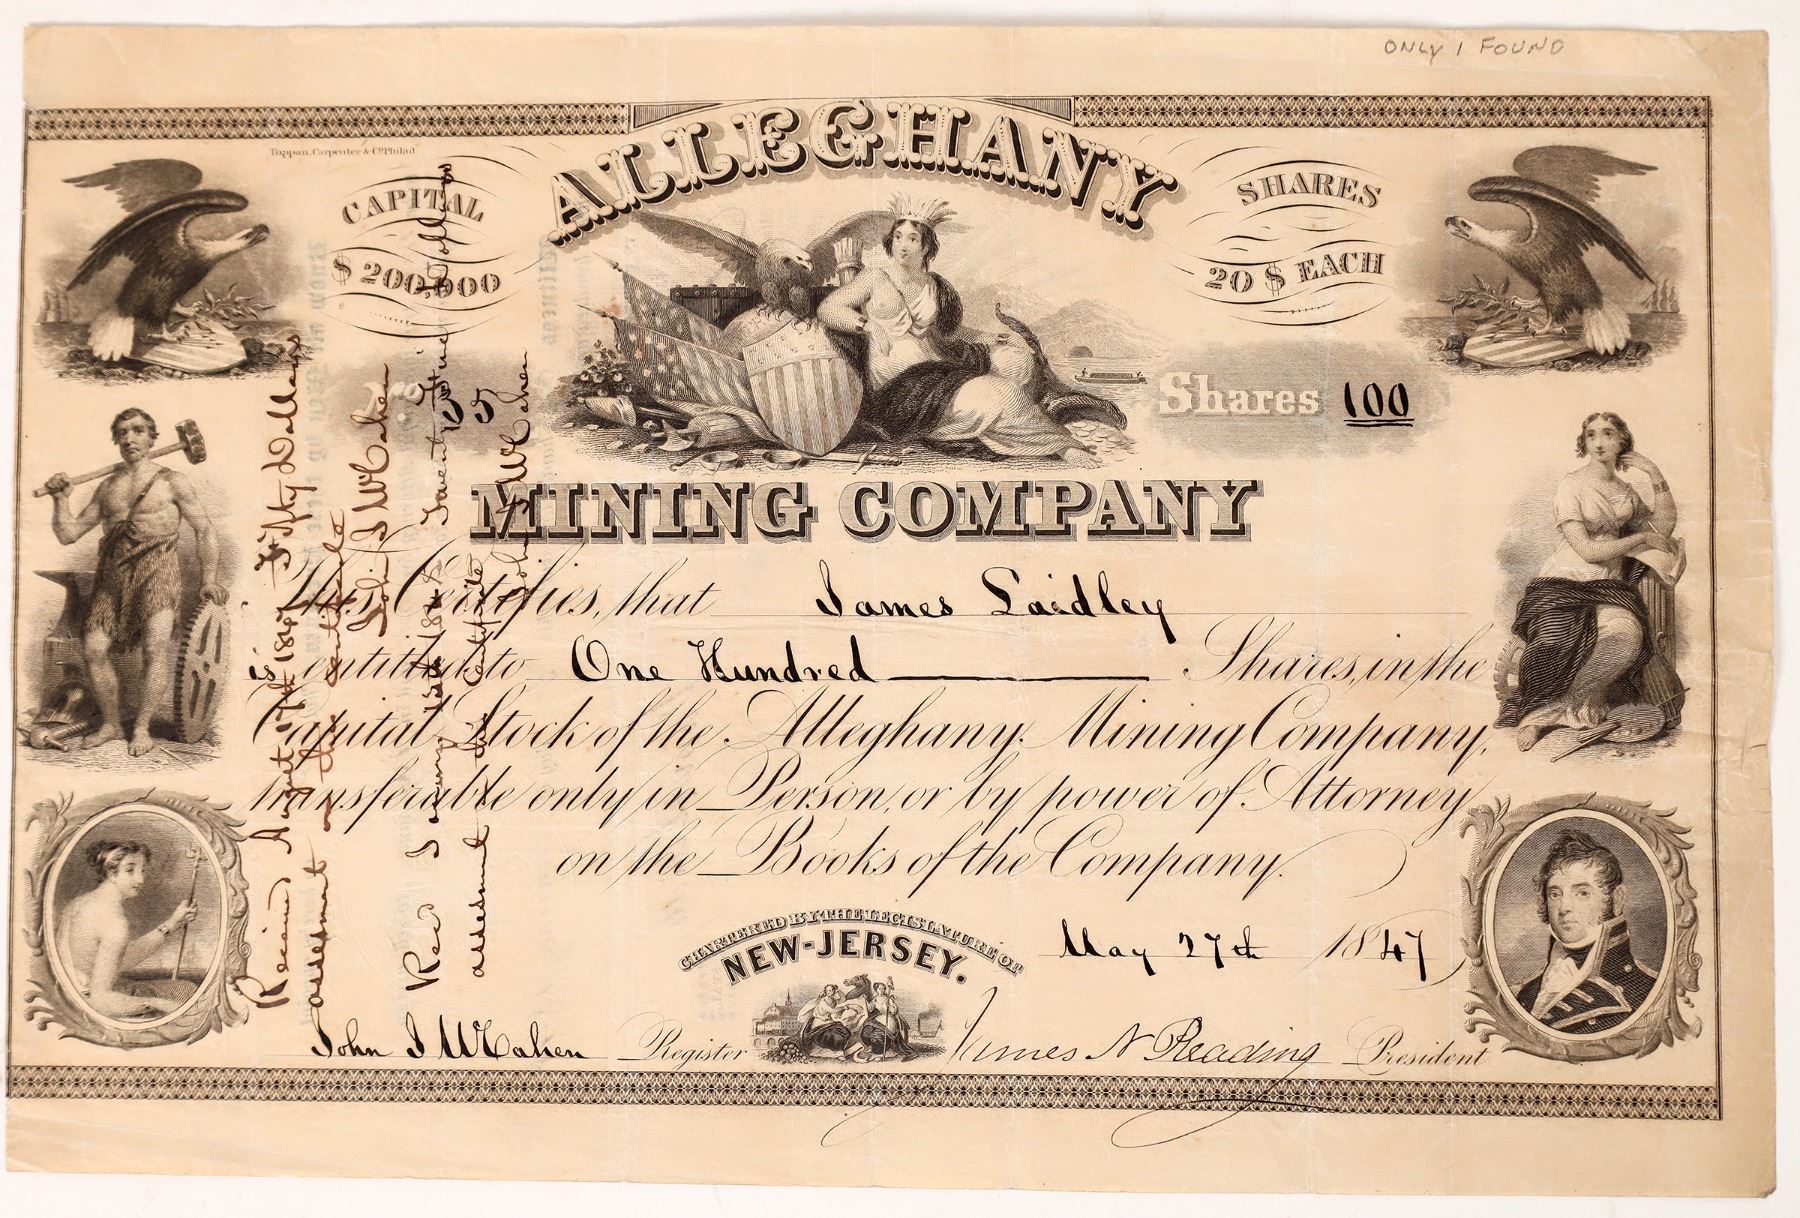 ONLY 1 FOUND
Toppan, Carpenter & Co. Philada.
ALLEGHANY
CAPITAL
$ 200,000
SHARES
20 $ EACH
Shares 100
MINING COMPANY
This Certifies, that James Laidley
is entitled to One Hundred Shares, in the
Capital Stock of the Alleghany Mining Company,
transferable only in Person, or by power of Attorney
on the Books of the Company.
CHARTERED BY THE LEGISLATURE OF
NEW-JERSEY.
May 27th 1847
John S McCahen Register
James N Reading President
August 1847 Fifty Dollars
assessment on this certificate
John S McCahen
Rec 15th 1848 Twenty Five Dollars
assessment this certificate
John S McCahen